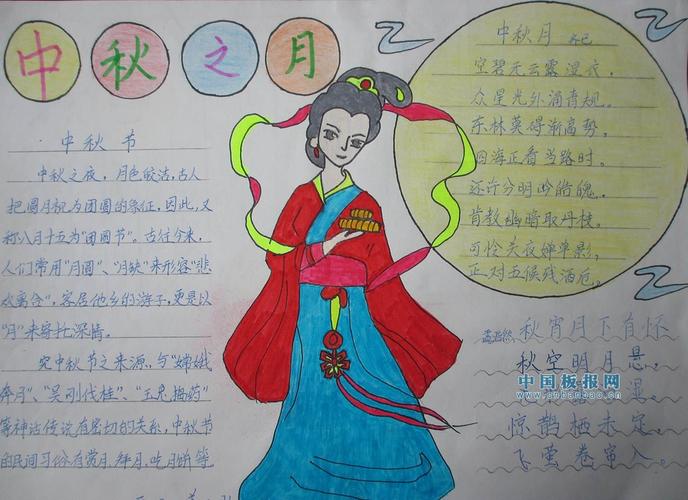 中秋之月
中秋节
中秋之夜，月色皎洁，古人
把圆月视为团圆的象征，因此，又
称八月十五为"团圆节"。古往今来，
人们常用"月圆"、"月缺"来形容"悲
欢离合"，客居他乡的游子，更是以
"月"来寄托深情。
究中秋节之来源，与"嫦娥
奔月"、"吴刚伐桂"、"玉兔捣药"
等神话传说有密切的关系，中秋节
的民间习俗有赏月、拜月、吃月饼等
中秋月 齐己
空碧无云露湿衣，
众星光外涌清规。
东林莫碍渐高势，
四海正看当路时。
还许分明吟皓魄，
肯教幽暗取丹枝。
可怜关夜婵娟影，
正对五候残酒卮。
孟浩然 秋宵月下有怀
秋空明月悬，
湿。
惊鹊栖未定，
飞萤卷帘入。
中国板报网
www.cnbanbao.cn